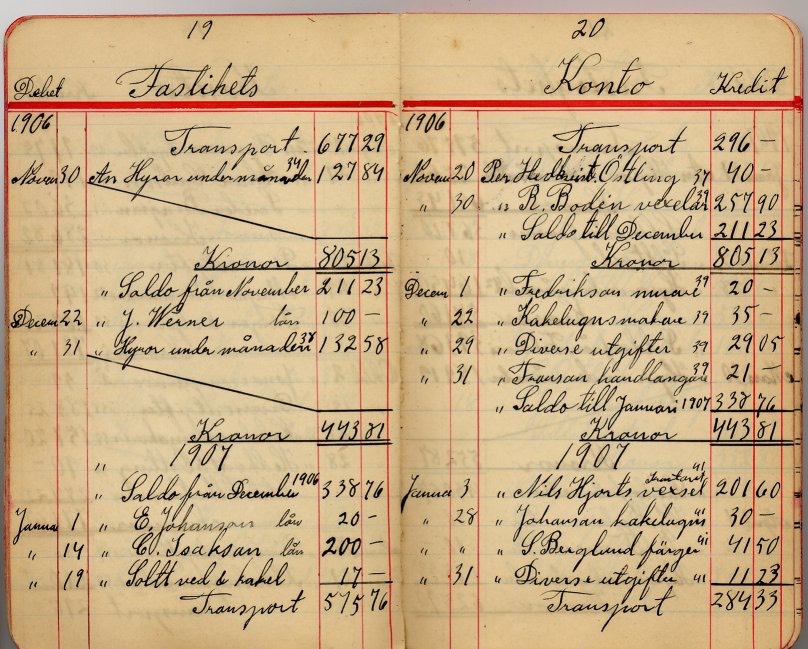 19
Debet Fastihets
1906
Transport 677 29
Novem 30 An Hyror under månaden 127 84
Kronor 805 13
„ Saldo från November 211 23
Decem 22 „ J. Werner lån 100 –
„ 31 „ Hyror under månaden 38 132 58
Kronor 443 81
„ 1907
„ Saldo från December 1906 338 76
Janua 1 „ E. Johanson lån 20 –
„ 14 „ C. Isakson lån 200 –
„ 19 „ Soltt ved & kakel 17 –
Transport 575 76
20
Konto Kredit
1906
Transport 296 –
Novem 20 Per Hedkvist. Östling 37 40 –
„ 30 „ R. Bodén vexelar 39 257 90
„ Saldo till December 211 23
Kronor 805 13
Decem 1 „ Fredrikson murare 39 20 –
„ 22 „ Kakelugnsmakare 39 35 –
„ 29 „ Diverse utgifter 39 29 05
„ 31 „ Franson handlangare 39 21 –
„ Saldo till Januari 1907 338 76
Kronor 443 81
1907
Janua 3 „ Nils Hjorts vexsel 41 201 60
„ 28 „ Johanson kakelugns 41 30 –
„ „ „ S. Berglund färger 41 41 50
„ 31 „ Diverse utgifter 41 11 23
Transport 284 33